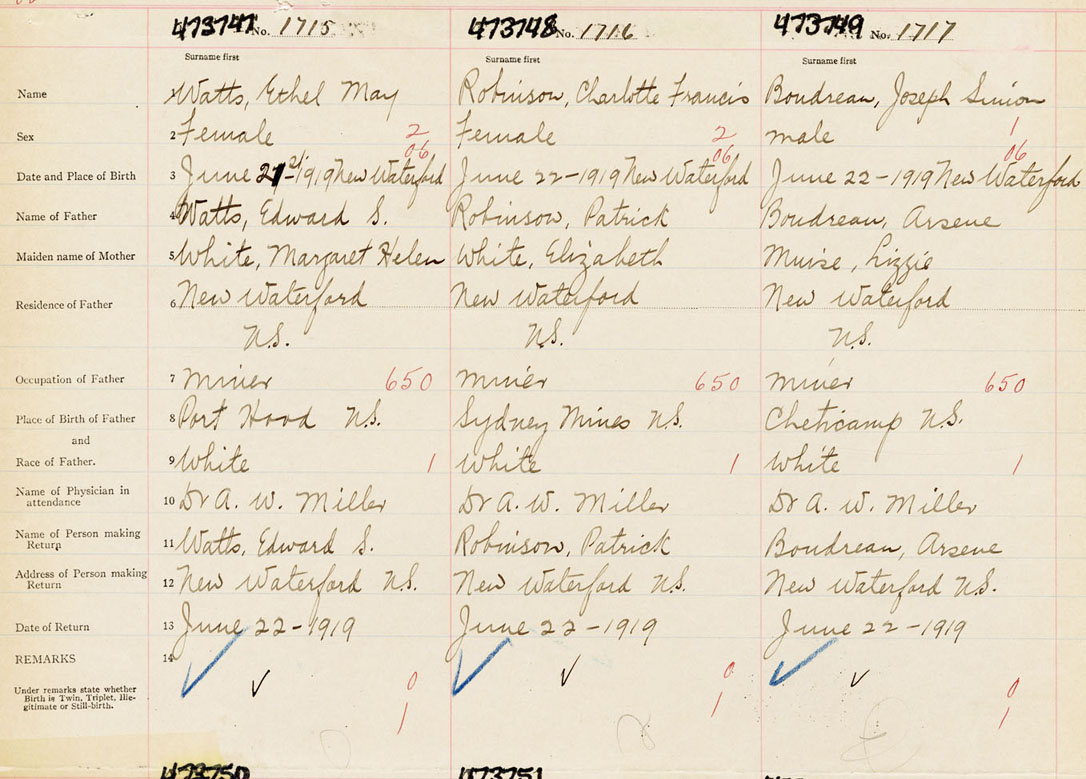 473747 No. 1715 473748 No. 1716 473749 No. 1717
Surname first Surname first Surname first
Name Watts, Ethel May Robinson, Charlotte Francis Boudreau, Joseph Simion
Sex 2 Female 2 Female 2 male 1
06 06 06
Date and Place of Birth 3 June 21-1919 New Waterford June 22-1919 New Waterford June 22-1919 New Waterford
Name of Father 4 Watts, Edward S. Robinson, Patrick Boudreau, Arsene
Maiden name of Mother 5 White, Margaret Helen White, Elizabeth Muise, Lizzie
Residence of Father 6 New Waterford New Waterford New Waterford
N.S. N.S. N.S.
Occupation of Father 7 miner 650 miner 650 miner 650
Place of Birth of Father 8 Port Hood N.S. Sydney Mines N.S. Cheticamp N.S.
and
Race of Father. 9 White 1 White 1 White 1
Name of Physician in attendance 10 Dr A. W. Miller Dr A. W. Miller Dr A. W. Miller
Name of Person making Return 11 Watts, Edward S. Robinson, Patrick Boudreau, Arsene
Address of Person making Return 12 New Waterford N.S. New Waterford N.S. New Waterford N.S.
Date of Return 13 June 22-1919 June 22-1919 June 22-1919
REMARKS 14
Under remarks state whether
Birth is Twin, Triplet, Ille-
gitimate or Still-birth.
0 0 0
1 1 1
473750 473751